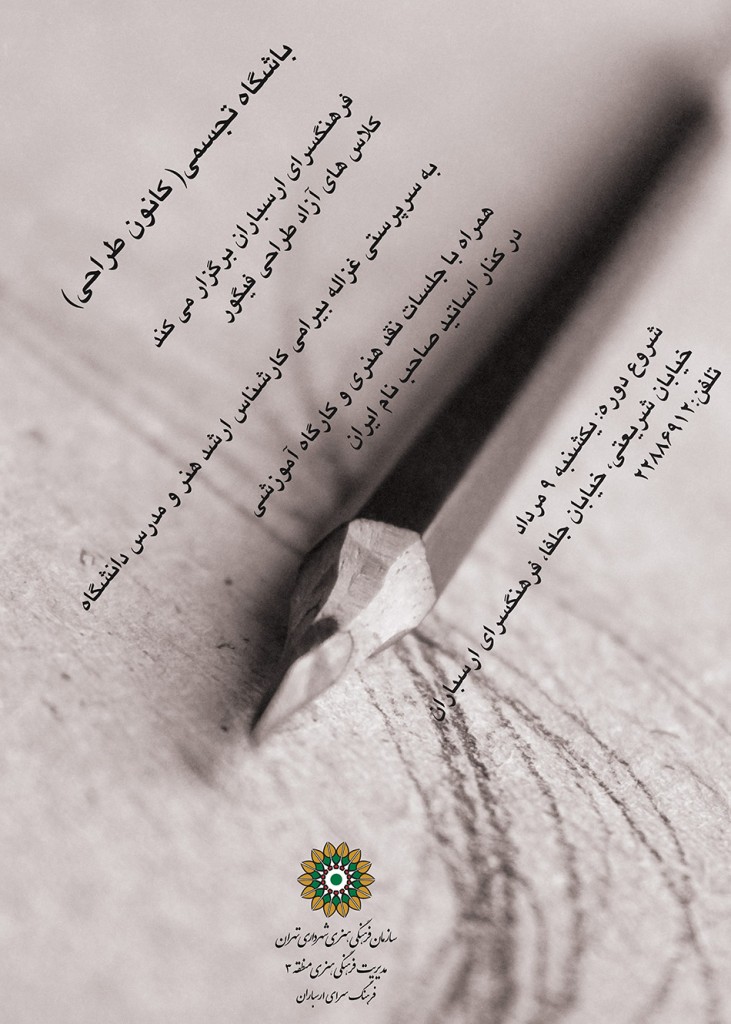 باشگاه تجسمی( کانون طراحی)
فرهنگسرای ارسباران برگزار می کند
کلاس های آزاد طراحی فیگور
به سرپرستی غزاله بیرامی کارشناس ارشد هنر و مدرس دانشگاه
همراه با جلسات نقد هنری و کارگاه آموزشی
در کنار اساتید صاحب نام ایران
شروع دوره: یکشنبه ۹ مرداد
خیابان شریعتی، خیابان جلفا، فرهنگسرای ارسباران
تلفن:۲۲۸۸۶۹۱۲
سازمان فرهنگی هنری شهرداری تهران
مدیریت فرهنگی هنری منطقه ۳
فرهنگ سرای ارسباران